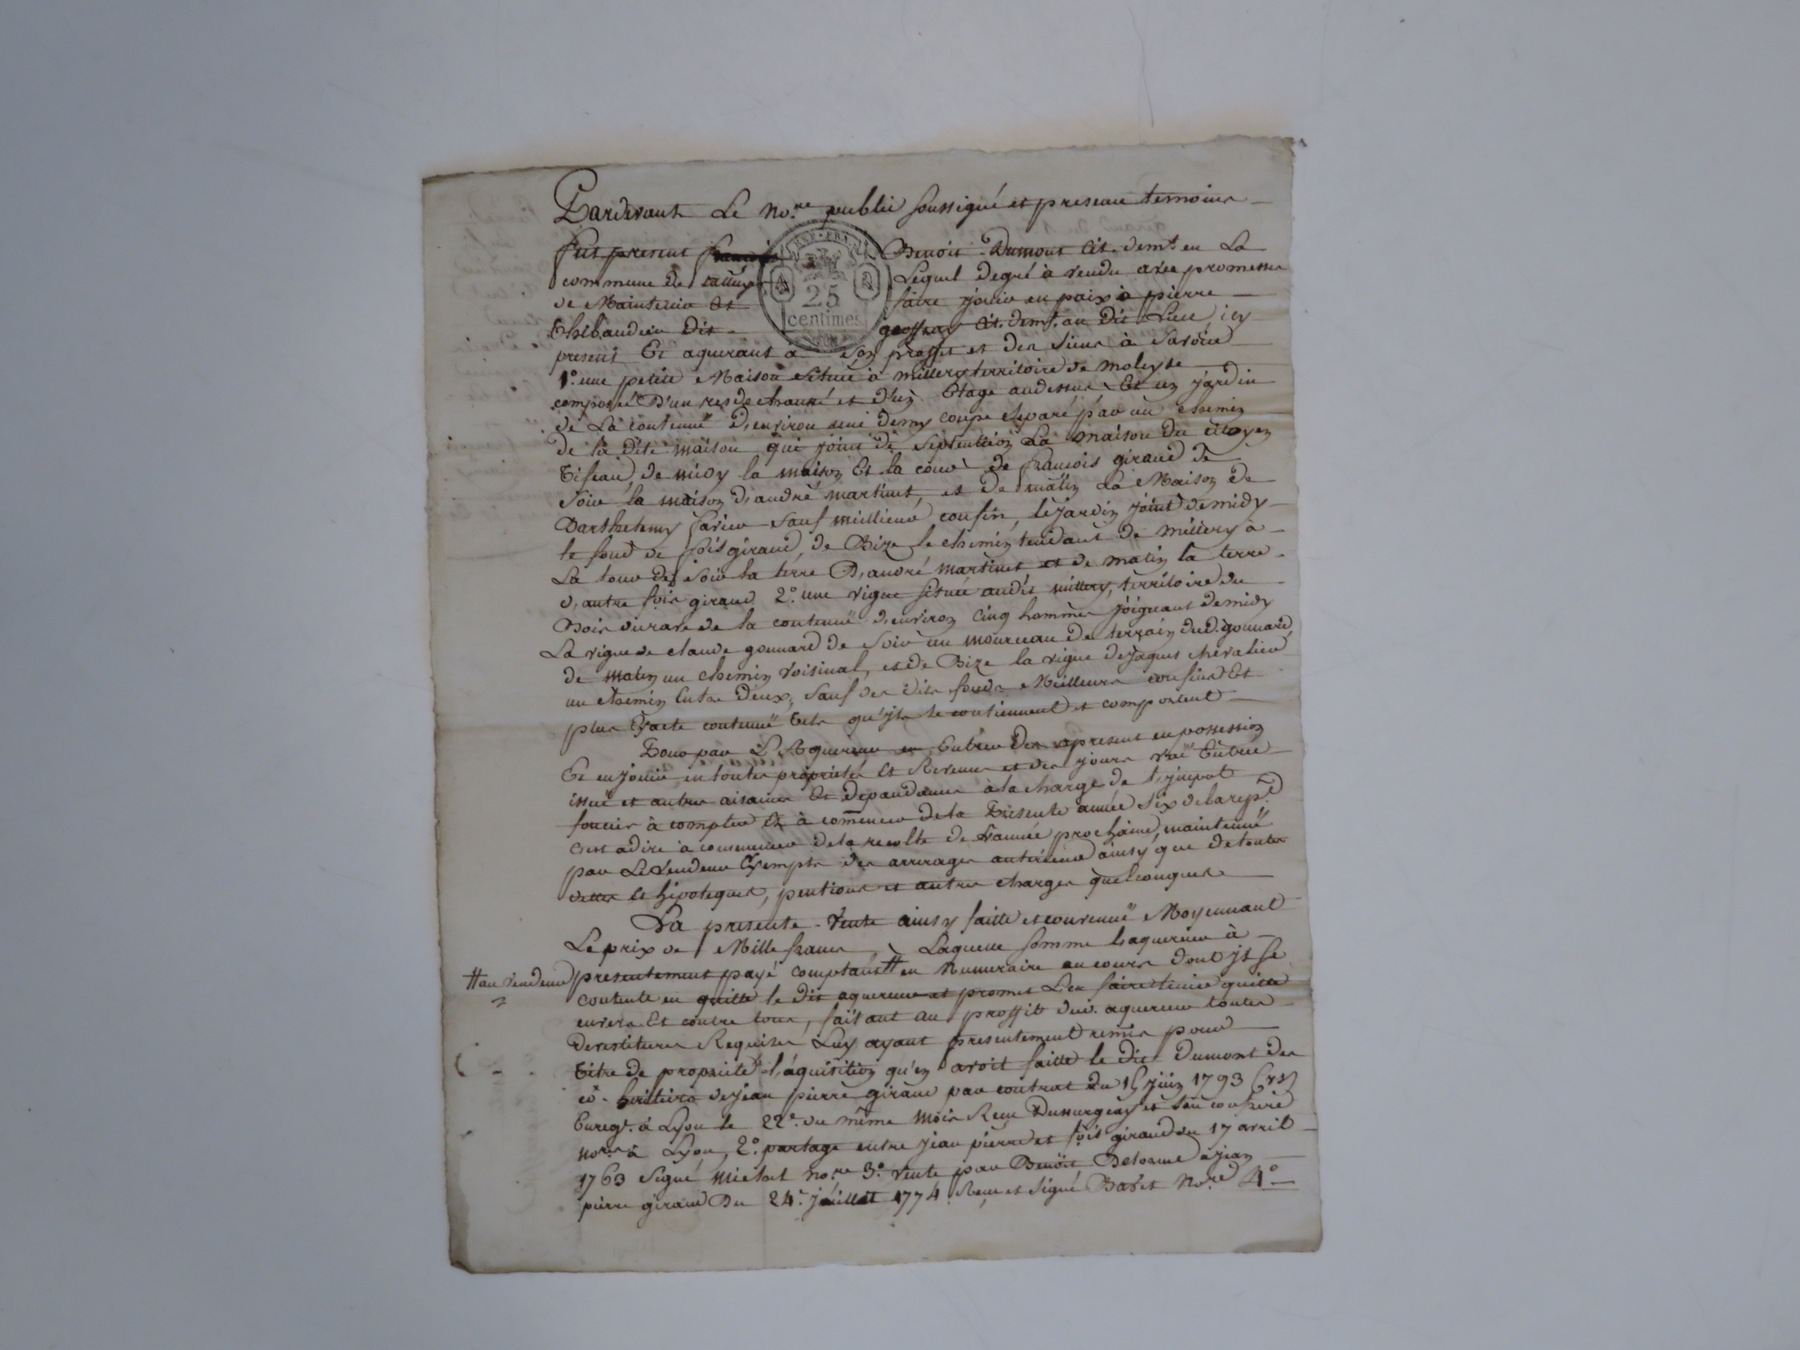 Pardevant Le no.re public soussigné et presens temoins
fut present Benoit Dumont Cit. demt. en La
commune de Lequel de gré à vendu avec promesse
de Maintenir et faire jouir en paix à pierre
thibaudier dit geoffray Cit. demt. au dit Lieu icy
present Et aquerant à son proffit et des siens à Savoir
1°. une petite Maison Située à millery territoire de
composé D'un res de chaussé et d'un Etage audessus Et un jardin
de La contenue D'environ une demy coupe separé par un chemin
de la Dite maison qui joint de Septention La maison du citoyen
de midy la maison Et la cour de françois giraud de
Soir la maison d'andré martinet, et de matin La Maison de
Barthelemy Sauf meillieurs confin, le jardin joint de midy
le fond de fois giraud, de Bize le chemin tendant de millery à
La tour de Soir la terre D'andré martinet et de matin la terre
d'autre fois giraud 2°. une vigne située audit millery, territoire du
Bois de la contenue d'environ Cinq hommés joignant de midy
La vigne de claude gonnard de Soir un mourceau de terrain dud. gonnard,
de matin un chemin voisinal, et de Bize la vigne de jaques chevalier
un chemin Entre Deux, Sauf des dits fonds Meilleurs confins Et
plus Exacte contenue tels qu'ils se contiennent et comportent
Pour par L'Aquereur en Entrer des apresent en possession
Et en jouir en toutes proprietés Et Revenus et des jours vue Entrée
issue et autres aisances Et dependances à la charge de l'impot
foncier à compter Et à commencer de la Presente année Six de la rep.e
c'est adire à commencer de la recolte de L'année prochaine, maintenue
par Le Vendeur Exempts des arrerages anterieurs ainsy que de toutes
dettes et hipoteques, pentions et autres charges quelconques
La presente Vente ainsy faitte et convenue Moyennant
Le prix de Mille francs Laquelle somme L'aquereur à
# au vendeur presentement payé comptant # en Numeraire au cours dont il se
contente en quitte le dit aquereur et promet L'en faire tenir quitte
envers Et contre tous, faisant au proffit dud. aquereur toutes
devestitures Requises Luy ayant presentement remis pour
titre de proprieté 1° l'aquisition qu'en avoit faitte le dit Dumont des
co. heritiers de jean pierre giraud par contrat du 15 juin 1793
Enregt. à Lyon le 22e. du même mois Recu Dussurgey et son confrere
nores à Lyon, 2°. partage entre jean pierre et fois giraud du 17 avril
1763 Signé michel no.re 3°. vente par Benoit Delorme à jean
pierre giraud Du 24e. juillet 1774 Recu et signé Baret No.re 4°
RÉP. FRA.
25
centimes